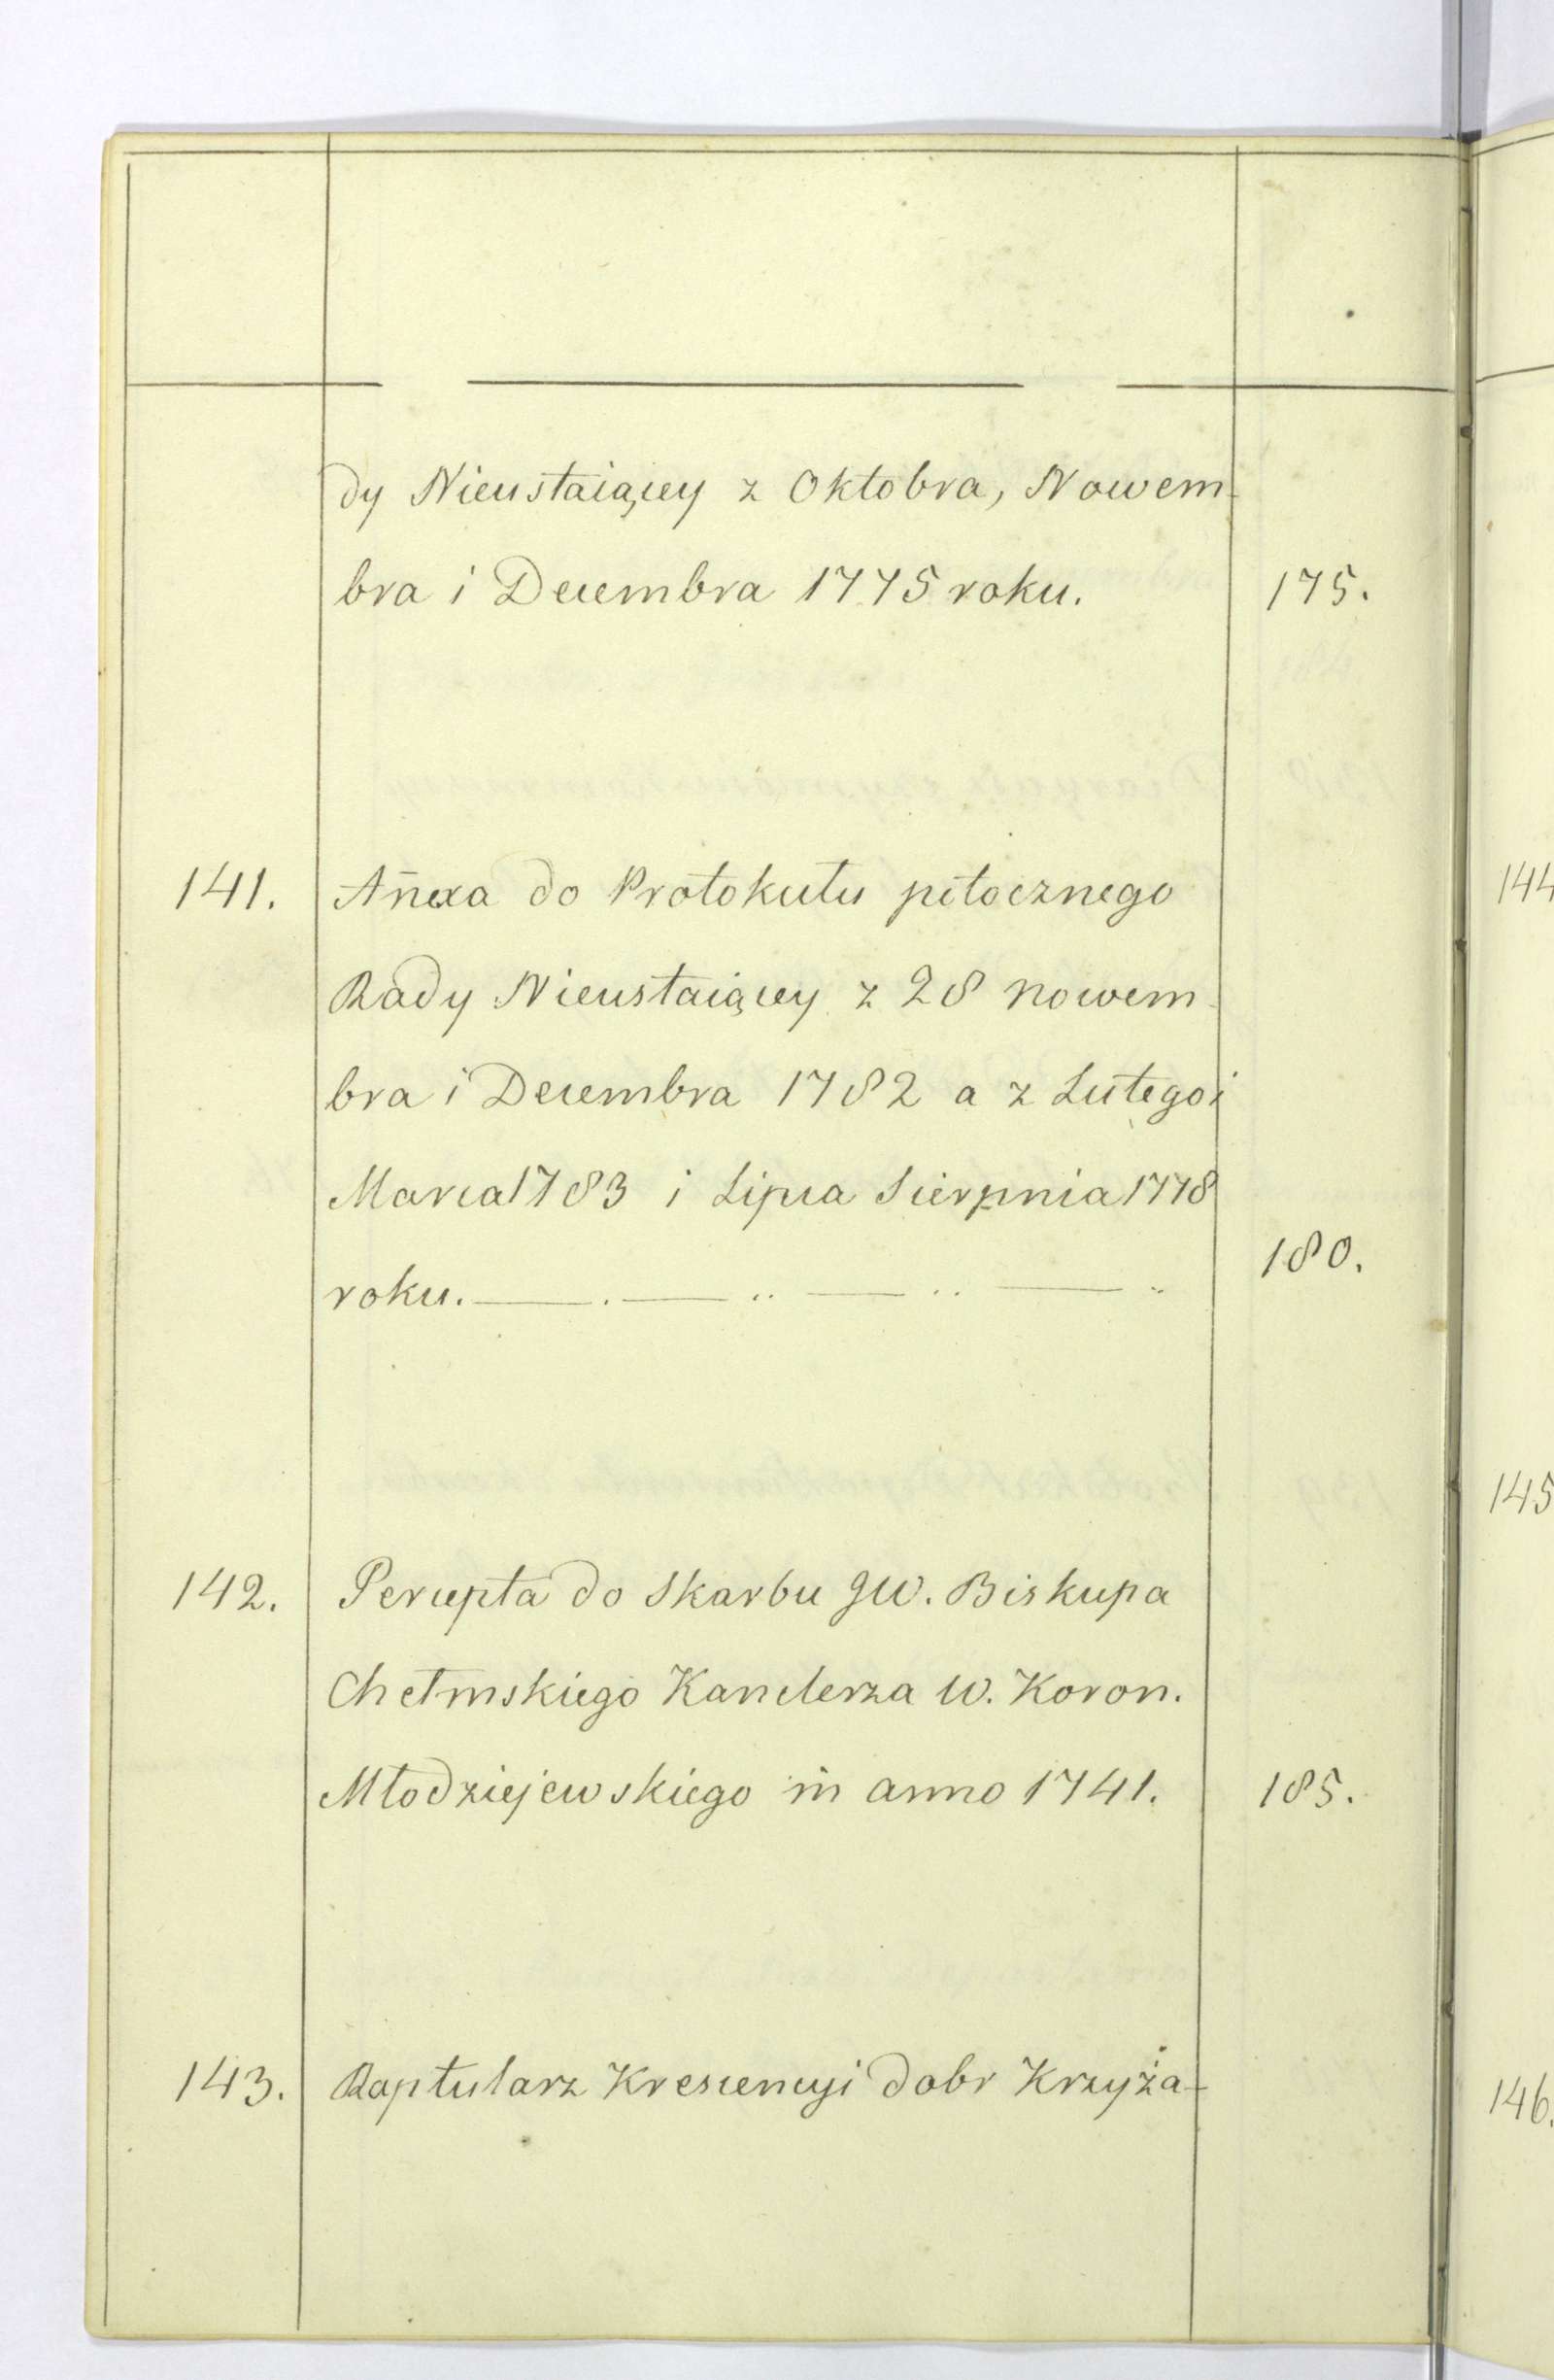 dy Nieustaiącey z Oktobra, Nowem-
bra i Decembra 1775 roku. 175.
141. Añexa do Protokułu potocznego
Rady Nieustaiącey z 28 nowem-
bra i Decembra 1782 a z Lutego i
Marca 1783 i Lipca Sierpnia 1778
roku. 180.
142. Percepta do Skarbu JW. Biskupa
Chełmskiego Kanclerza W. Koron.
Młodziejewskiego in anno 1741. 185.
143. Raptularz Krescencyi dobr Krzyża-
144
145
146.